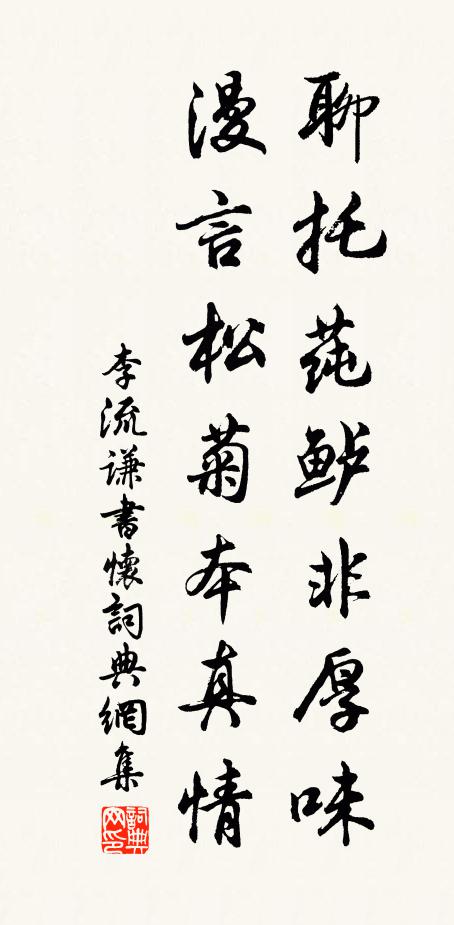 聊托莼鲈非厚味
漫言松菊本真情
李流谦書懷詞典網集
詞典网印